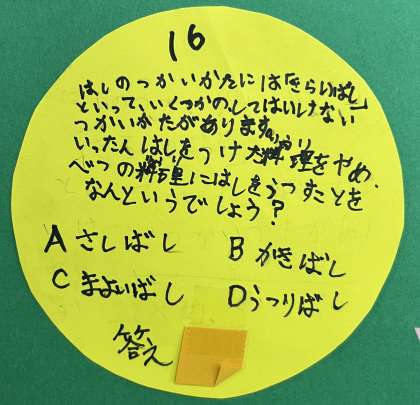 16
はしのつかいかたには「きらいばし」
といって、いくつかのしてはいけない
つかいかたがあります。
いったんはしをつけた料理をやめ、
べつの料理にはしをうつすことを
なんというでしょう?
A さしばし
B かきばし
C まよいばし
D うつりばし
答え